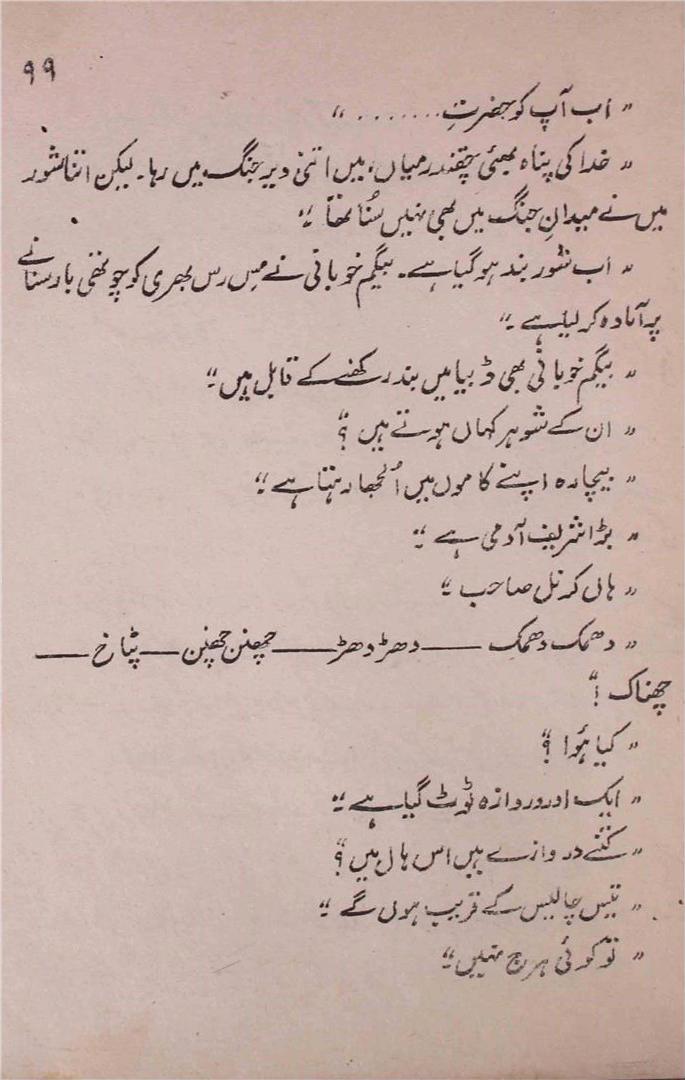 ۹۹
” اب آپ کو حضرتِ ........ “
” خدا کی پناہ بھئی چقندر میاں، میں اتنی دیر جنگ میں رہا۔ لیکن اتنا شور
میں نے میدانِ جنگ میں بھی نہیں سُنا تھا ۔“
” اب شور بند ہو گیا ہے۔ بیگم خوبانی نے مِس رس بھری کو چوتھی بار سنانے
پر آمادہ کر لیا ہے ۔“
” بیگم خوبانی بھی ڈبیا میں بند رکھنے کے قابل ہیں۔“
” ان کے شوہر کہاں ہوتے ہیں ؟“
” بیچارہ اپنے کاموں میں اُلجھا رہتا ہے۔“
” بڑا شریف آدمی ہے ۔“
” ہاں کرنل صاحب ۔“
” دھمک دھمک —— دھڑ دھڑ —— چھنن چھنن —— پٹاخ ——
چھناک !“
” کیا ہُوا ؟“
” ایک اور دروازہ ٹوٹ گیا ہے ۔“
” کتنے دروازے ہیں اس ہال میں ؟“
” تیس چالیس کے قریب ہوں گے ۔“
” تو کوئی ہرج نہیں۔“